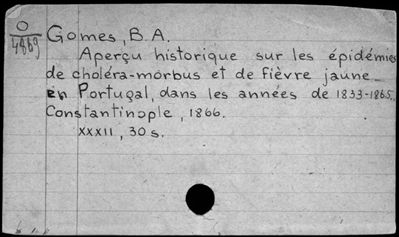 O
4869
Gomes, B.A.
Aperçu historique sur les épidémies
de choléra-morbus et de fièvre jaune
en Portugal, dans les années de 1833-1865.
Constantinople, 1866.
XXXII, 30 s.